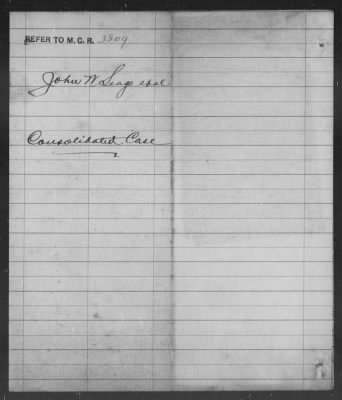 REFER TO M. C. R. 3809
John W Seago et al
Consolidated Case